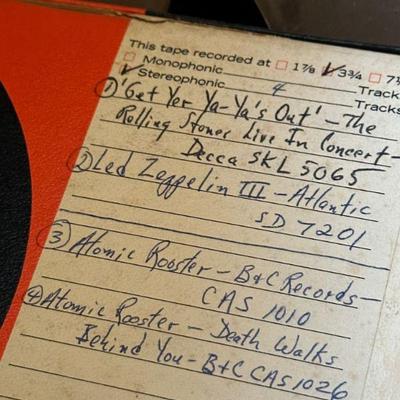 This tape recorded at □ 1⅞ ☑ 3¾ □ 7½
□ Monophonic 4 Track
✓ Stereophonic Tracks
① 'Get Yer Ya-Ya's Out' - The
Rolling Stones Live In Concert -
Decca SKL 5065
② Led Zeppelin III - Atlantic
SD 7201
③ Atomic Rooster - B+C Records -
CAS 1010
④ Atomic Rooster - Death Walks
Behind You - B+C CAS 1026